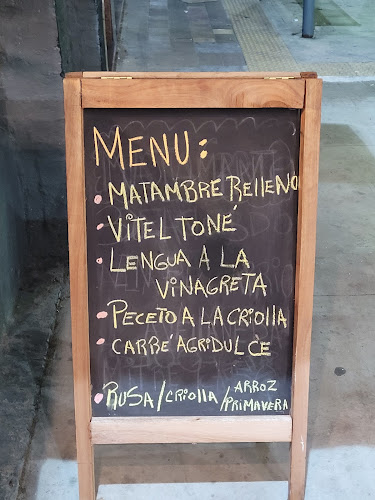 MENU:
• MATAMBRE RELLENO
• VITEL TONÉ
• LENGUA A LA
VINAGRETA
• PECETO A LA CRIOLLA
• CARRÉ AGRIDULCE
• RUSA/CRIOLLA/ARROZ
PRIMAVERA